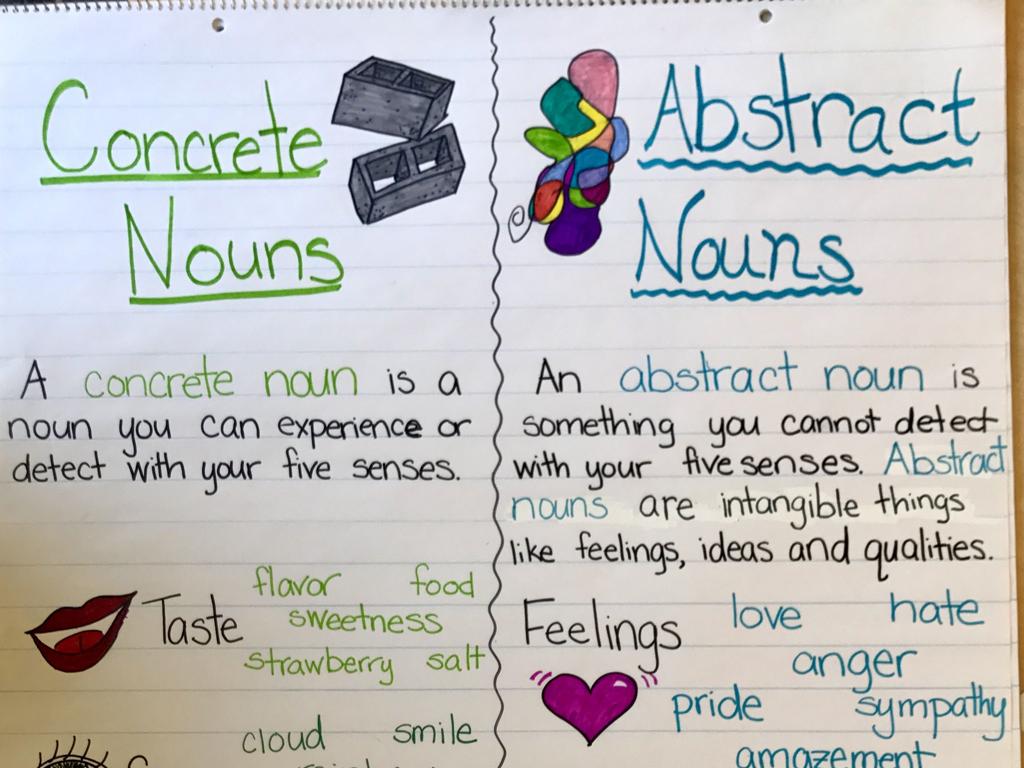 Concrete
Nouns
A concrete noun is a
noun you can experience or
detect with your five senses.
Taste
flavor food
sweetness
strawberry salt
cloud smile
Abstract
Nouns
An abstract noun is
something you cannot detect
with your five senses. Abstract
nouns are intangible things
like feelings, ideas and qualities.
Feelings
love hate
anger
pride sympathy
amazement